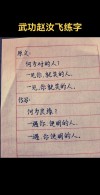 武功赵汝飞练字
原文:
何为对的人?
一见你,就笑的人,
一见你,就笑的人。
仿写:
何为贵缘?
一遇你,便闹的人,
一遇你,便闹的人。